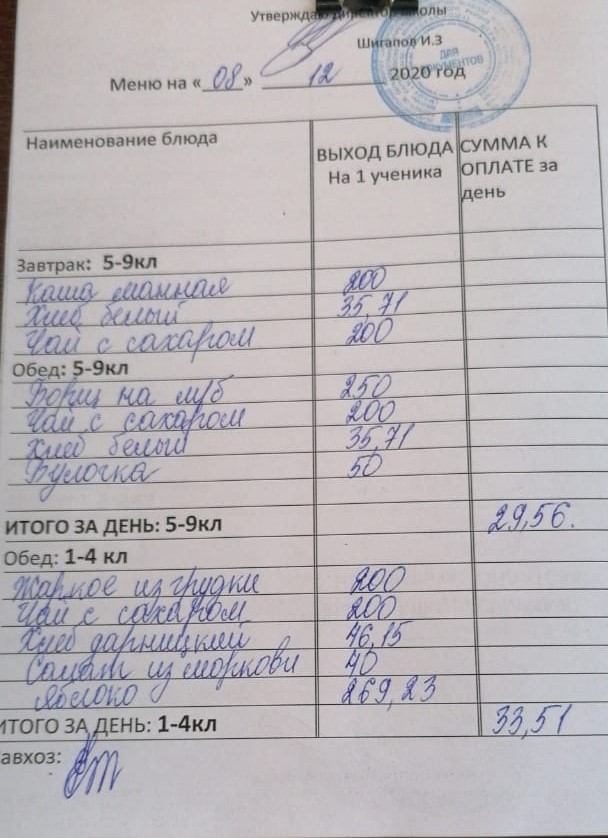 Утверждаю директор школы
Шигапов И.З
Меню на «08» 12 2020 год
ДЛЯ
ДОКУМЕНТОВ
Наименование блюда ВЫХОД БЛЮДА На 1 ученика СУММА К ОПЛАТЕ за день
Завтрак: 5-9кл
Каша манная 200
Хлеб белый 35,71
Чай с сахаром 200
Обед: 5-9кл
Борщ на м/б 250
Чай с сахаром 200
Хлеб белый 35,71
Булочка 50
ИТОГО ЗА ДЕНЬ: 5-9кл 29,56.
Обед: 1-4 кл
Жаркое из грудки 200
Чай с сахаром 200
Хлеб дарницкий 46,15
Салат из моркови 40
Яблоко 269,23
ИТОГО ЗА ДЕНЬ: 1-4кл 33,51
авхоз: